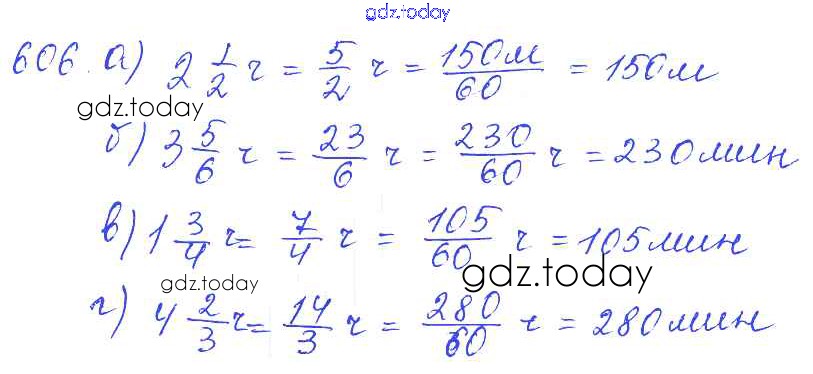 gdz.today
606. а) 2 1/2 ч = 5/2 ч = 150м/60 = 150м
gdz.today
б) 3 5/6 ч = 23/6 ч = 230/60 ч = 230мин
в) 1 3/4 ч = 7/4 ч = 105/60 ч = 105мин
gdz.today gdz.today
г) 4 2/3 ч = 14/3 ч = 280/60 ч = 280мин